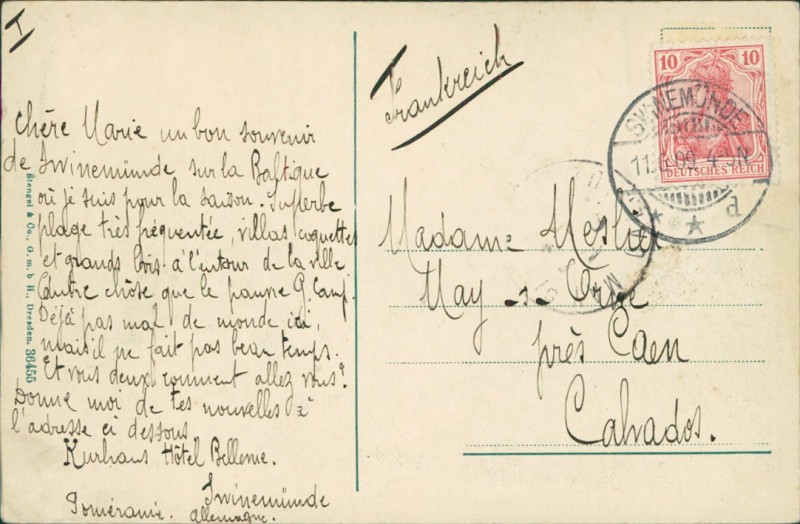 I
Chère Marie un bon souvenir
de Swinemünde sur la Baltique
où je suis pour la saison. Superbe
plage très fréquentée, villas coquettes
et grands bois à l'entour de la ville.
Quûtre chôse que le pauvre G. Camp.
Déjà pas mal de monde ici,
mais il ne fait pas beau temps.
Et vous deux comment allez vous?
Donne moi de tes nouvelles à
l'adresse ci dessous
Kurhaus Hôtel Bellevue.
Swinemünde
Poméranie. Allemagne.
Stengel & Co., G. m. b. H., Dresden. 36455
Frankreich
10 10
DEUTSCHES REICH
SWINEMÜNDE
11. 09. 4-5N
d
Madame Meslier
May-s-Orne
près Caen
Calvados.